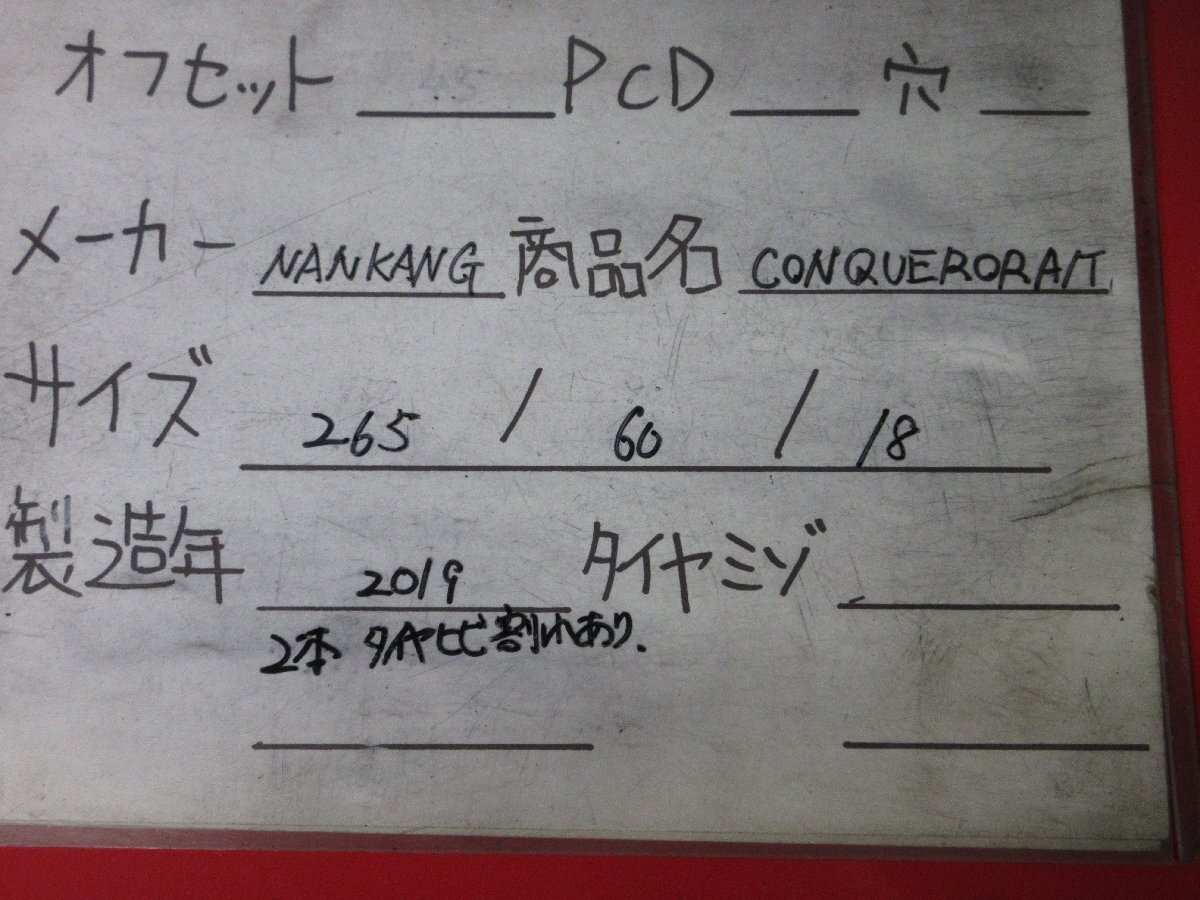 オフセット PCD 穴
メーカー NANKANG 商品名 CONQUEROR A/T
サイズ 265 / 60 / 18
製造年 2019 タイヤミゾ
2本 タイヤヒビ割れあり.